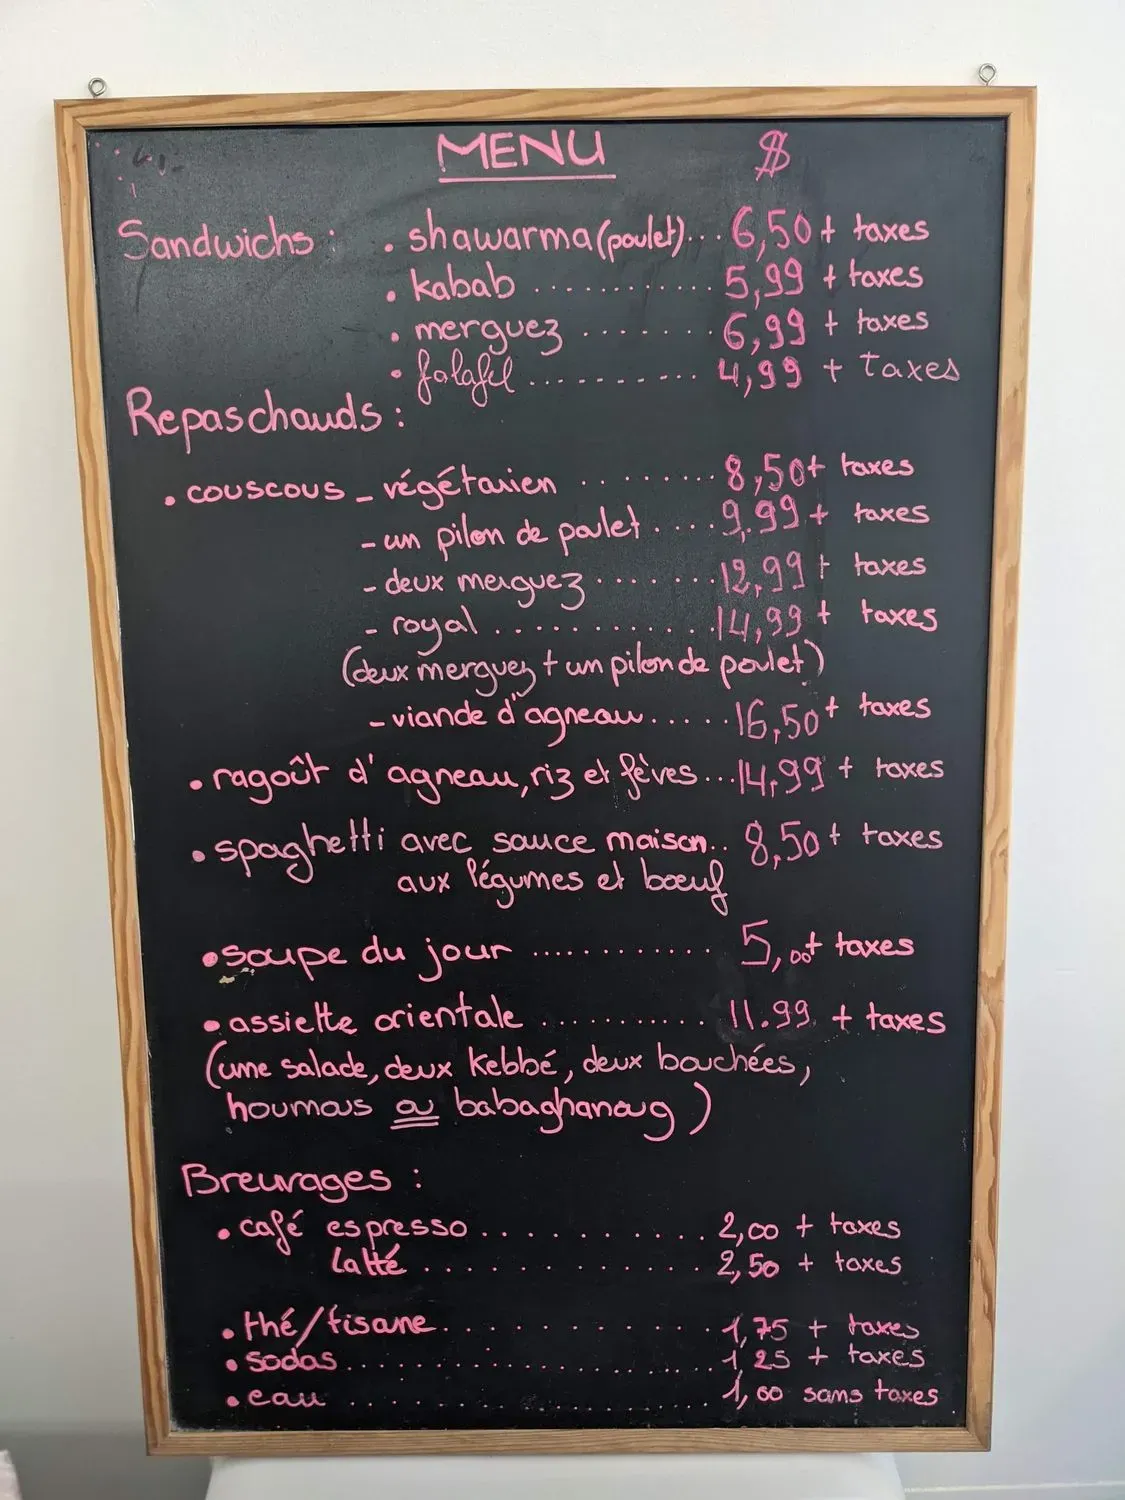 MENU $
Sandwichs : • shawarma (poulet)... 6,50 + taxes
• kabab ............ 5,99 + taxes
• merguez ........ 6,99 + taxes
• falafel .......... 4,99 + taxes
Repas chauds :
• couscous - végétarien ........ 8,50 + taxes
- un pilon de poulet .... 9.99 + taxes
- deux merguez ....... 12,99 + taxes
- royal ............ 14,99 + taxes
(deux merguez + un pilon de poulet)
- viande d'agneau ..... 16,50 + taxes
• ragoût d'agneau, riz et fèves ... 14,99 + taxes
• spaghetti avec sauce maison.. 8,50 + taxes
aux légumes et bœuf
• soupe du jour ............ 5,00 + taxes
• assiette orientale ........... 11.99 + taxes
(une salade, deux Kebbé, deux bouchées,
houmous ou babaghanoug)
Breuvages :
• café espresso ............ 2,00 + taxes
latté .............. 2,50 + taxes
• thé/tisane ............ 1,75 + taxes
• sodas .................. 1,25 + taxes
• eau .................. 1,00 sans taxes